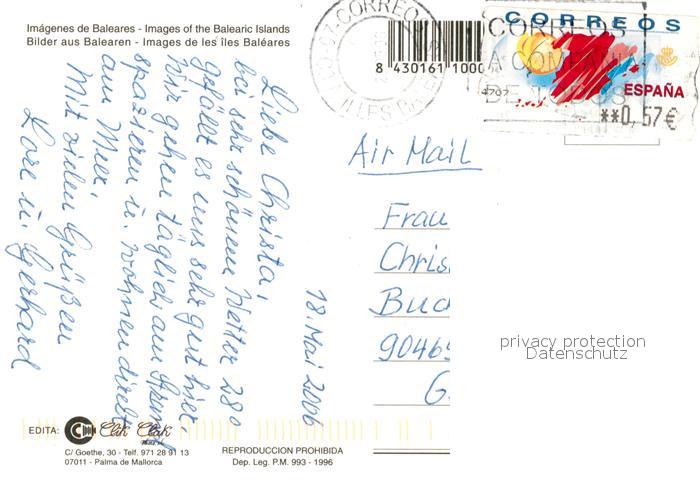 Imágenes de Baleares - Images of the Balearic Islands
Bilder aus Balearen - Images de les îles Baléares
8 430161 1000
CORREOS
ESPAÑA
**0,57€
CORREOS
A COMPAÑIA
DE TODOS
CORREO
Air Mail
Frau
Chris
Buc
9046
G
privacy protection
Datenschutz
18. Mai 2006
Liebe Christa,
bei sehr schönem Wetter 28°
gefällt es uns sehr gut hier.
Wir gehen täglich am Strand
spazieren u. wohnen direkt
am Meer.
Mit vielen Grüßen
Lore u. Gerhard
EDITA: Clik Clak
C/ Goethe, 30 - Telf. 971 28 91 13
07011 - Palma de Mallorca
REPRODUCCION PROHIBIDA
Dep. Leg. P.M. 993 - 1996